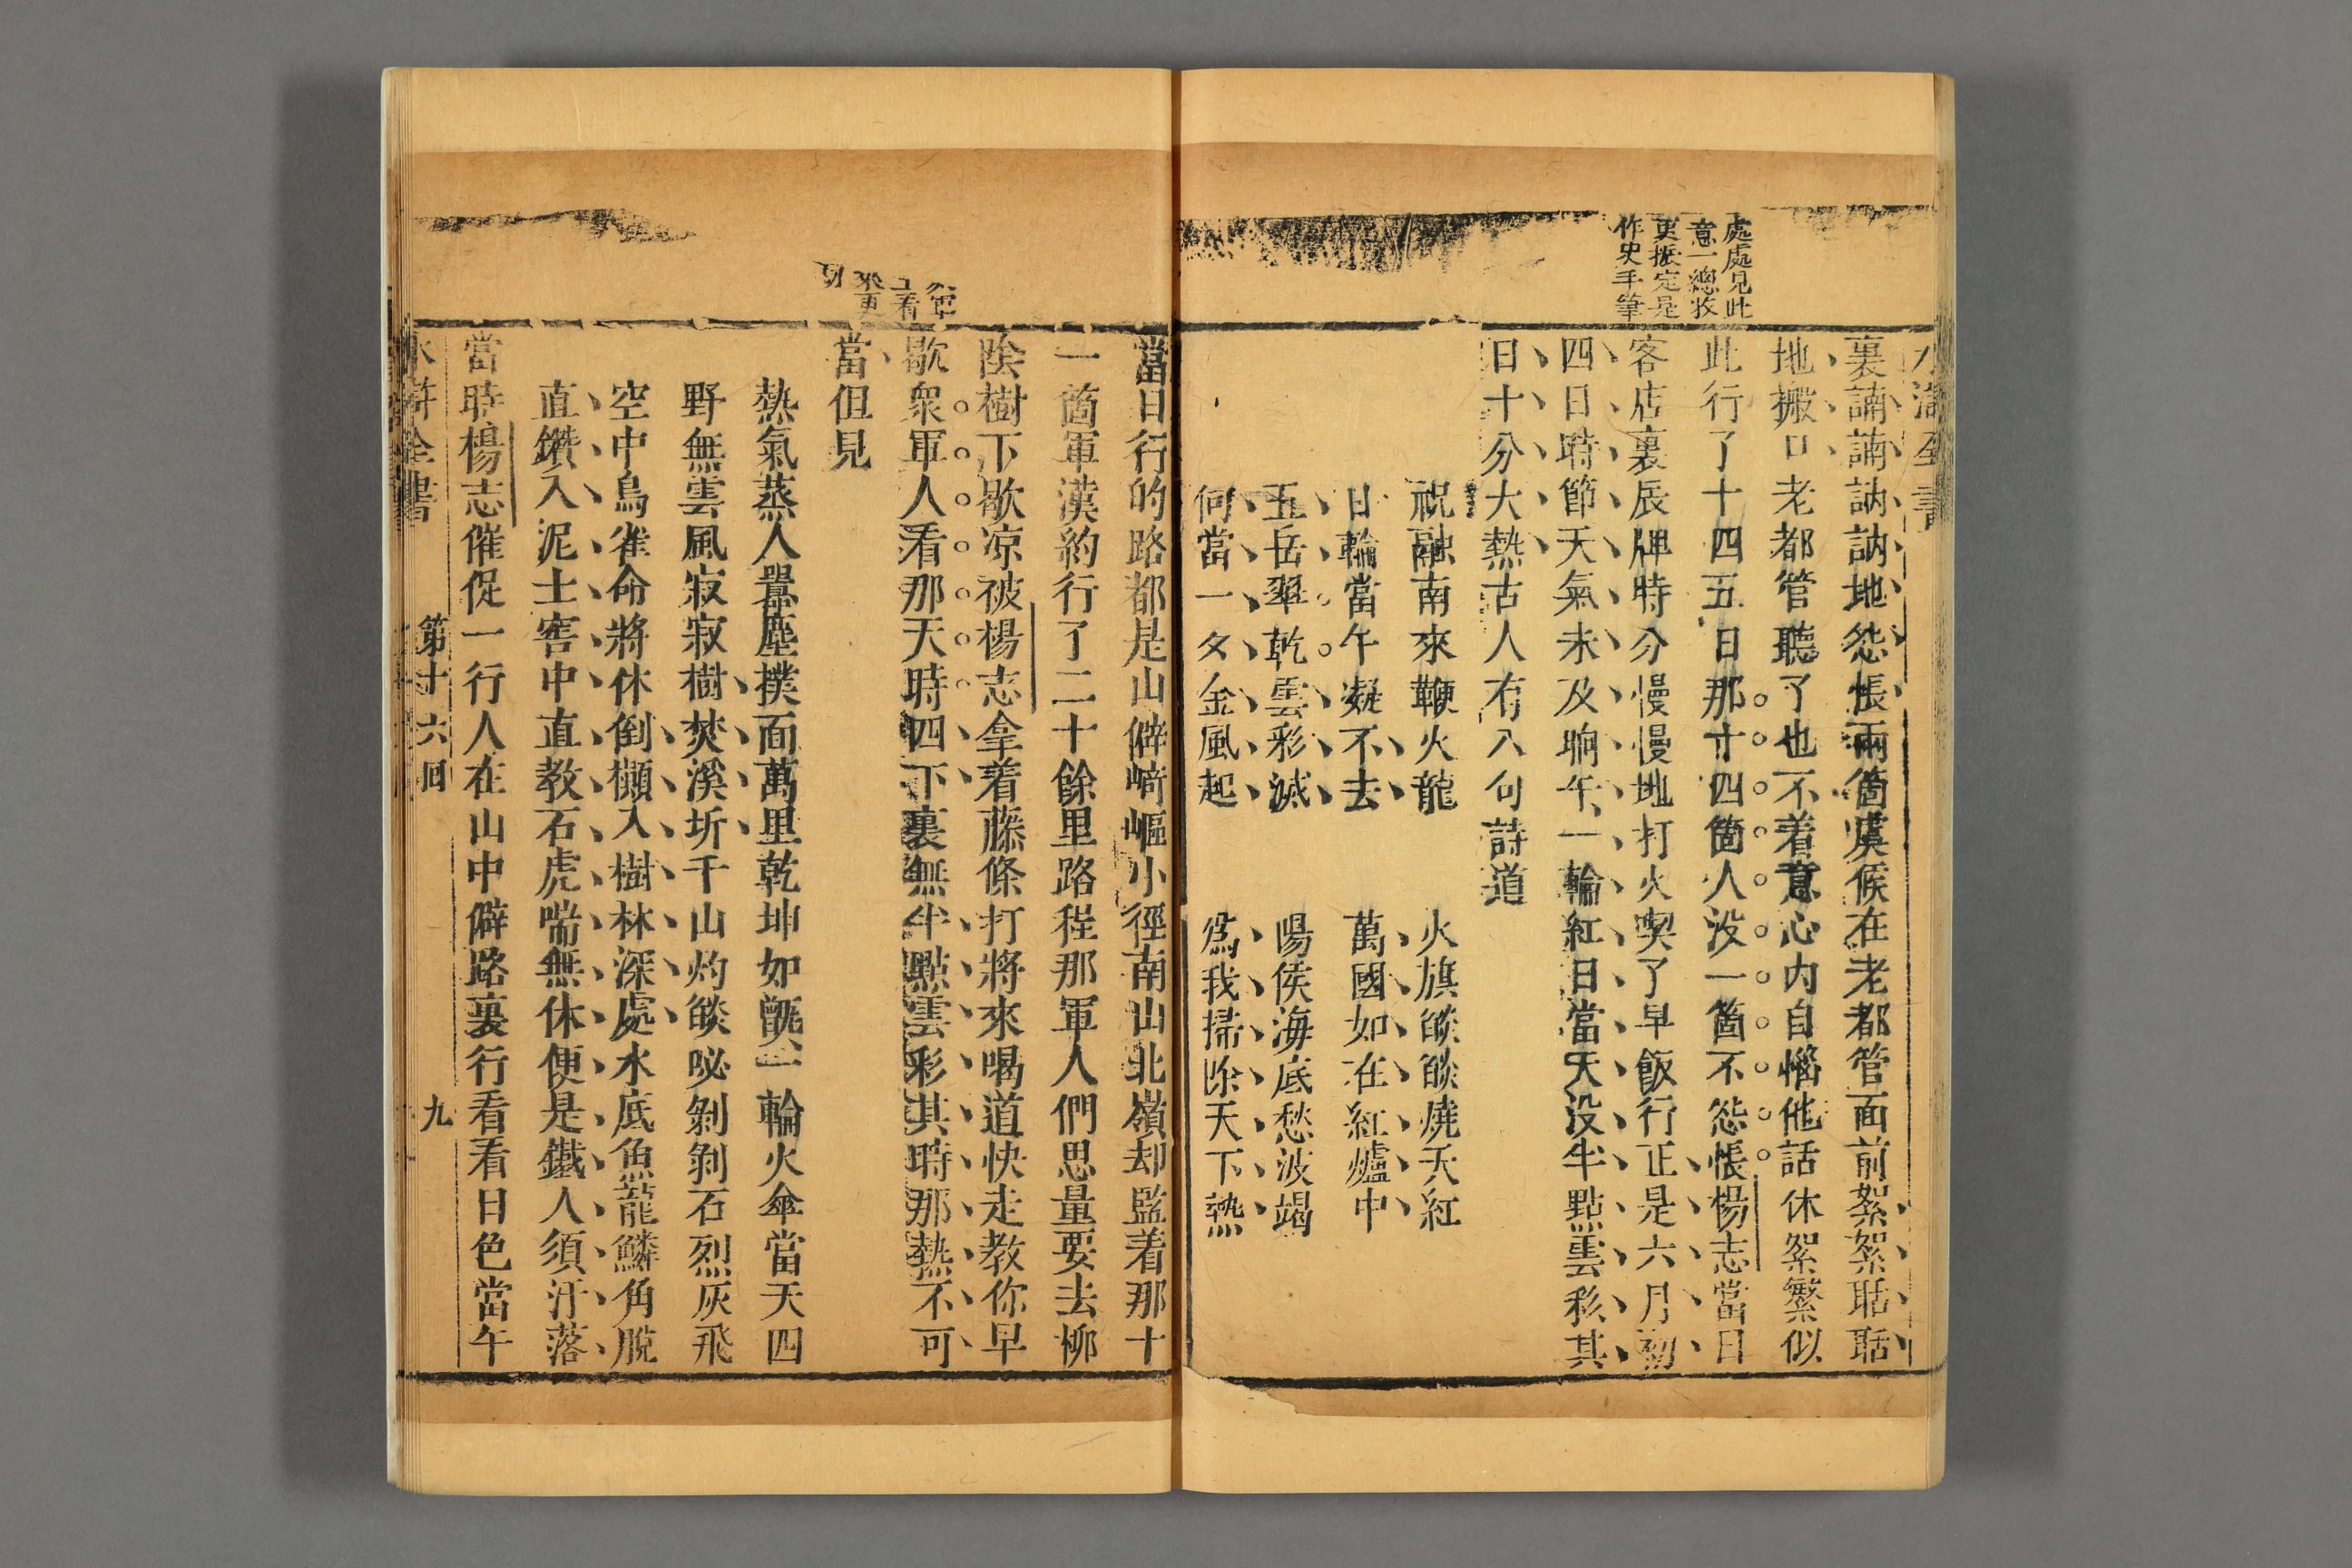 水滸全書
處處見此
意一總收
更振定是
作史手筆
裏喃喃訥訥地怨悵兩箇虞候在老都管面前絮絮聒聒
地搬口老都管聽了也不着意心内自惱他話休絮繁似
此行了十四五日那十四箇人没一箇不怨悵楊志當日
客店裏辰牌時分慢慢地打火喫了早飯行正是六月初
四日時節天氣未及晌午一輪紅日當天没半點雲彩其
日十分大熱古人有八句詩道
祝融南來鞭火龍　火旗燄燄燒天紅
日輪當午凝不去　萬國如在紅爐中
五岳翠乾雲彩滅　陽侯海底愁波竭
何當一夕金風起　爲我掃除天下熱
當日行的路都是山僻﨑嶇小徑南山北嶺却監着那十
一箇軍漢約行了二十餘里路程那軍人們思量要去柳
陰樹下歇凉被楊志拿着藤條打將來喝道快走教你早
歇衆軍人看那天時四下裏無半點雲彩其時那熱不可
當但見
熱氣蒸人囂塵撲面萬里乾坤如甑一輪火傘當天四
野無雲風寂寂樹焚溪坼千山灼燄咇剝剝石烈灰飛
空中鳥雀命將休倒攧入樹林深處水底魚龍鱗角脫
直鑽入泥土窖中直教石虎喘無休便是鐵人須汗落
當時楊志催促一行人在山中僻路裏行看看日色當午
水滸全書　第十六回　九